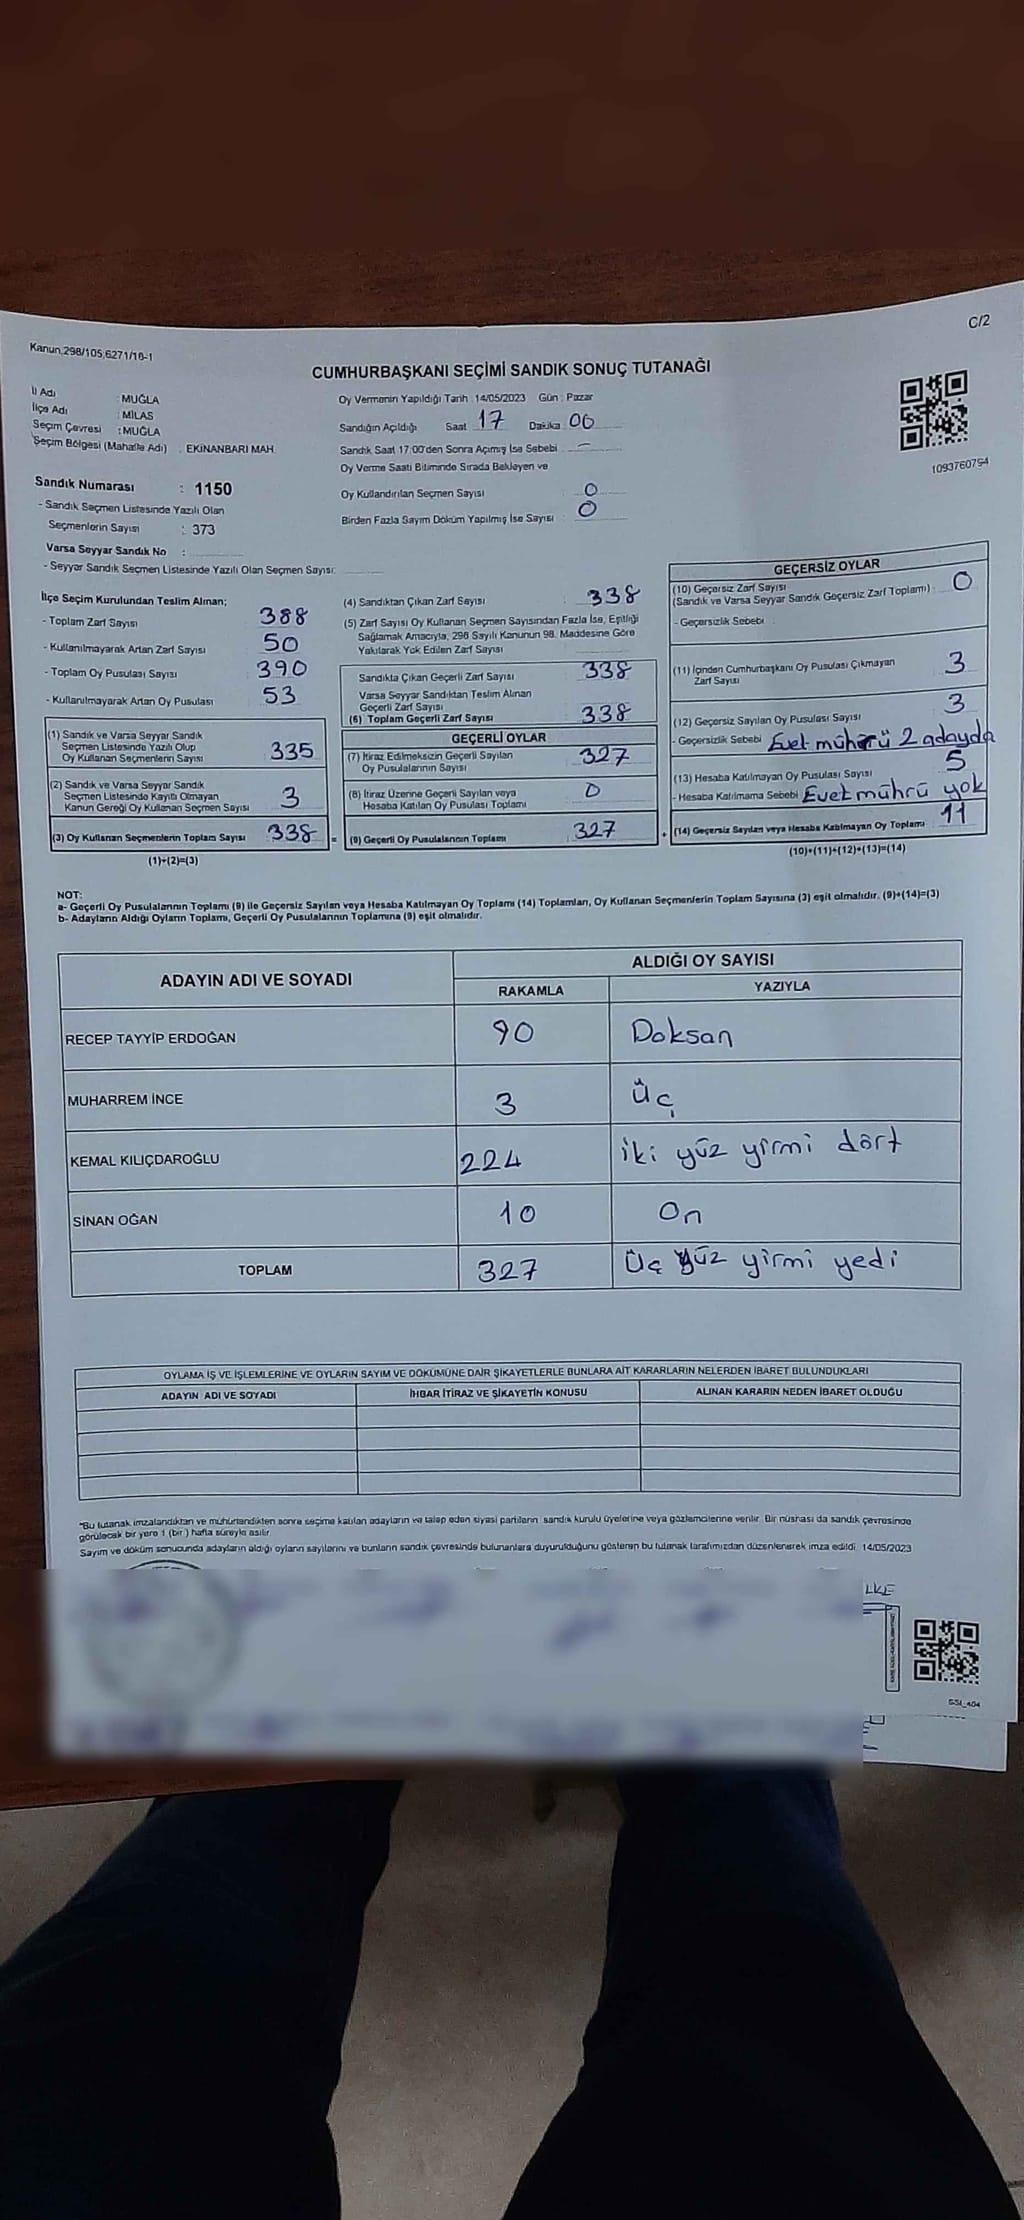 C/2
Kanun,298/105,6271/16-1
CUMHURBAŞKANI SEÇİMİ SANDIK SONUÇ TUTANAĞI
İl Adı : MUĞLA
İlçe Adı : MİLAS
Seçim Çevresi : MUĞLA
Seçim Bölgesi (Mahalle Adı) : EKİNANBARI MAH.
Oy Vermenin Yapıldığı Tarih :14/05/2023 Gün : Pazar
Sandığın Açıldığı Saat 17 Dakika 06
Sandık Saat 17:00'den Sonra Açmış İse Sebebi : -
Oy Verme Saati Bitiminde Sırada Bekleyen ve
Oy Kullandırılan Seçmen Sayısı : 0
Birden Fazla Sayım Döküm Yapılmış İse Sayısı : 0
1093760794
Sandık Numarası : 1150
- Sandık Seçmen Listesinde Yazılı Olan
Seçmenlerin Sayısı : 373
Varsa Seyyar Sandık No :
- Seyyar Sandık Seçmen Listesinde Yazılı Olan Seçmen Sayısı:
İlçe Seçim Kurulundan Teslim Alınan;
- Toplam Zarf Sayısı 388
- Kullanılmayarak Artan Zarf Sayısı 50
- Toplam Oy Pusulası Sayısı 390
- Kullanılmayarak Artan Oy Pusulası 53
(1) Sandık ve Varsa Seyyar Sandık
Seçmen Listesinde Yazılı Olup
Oy Kullanan Seçmenlerin Sayısı 335
(2) Sandık ve Varsa Seyyar Sandık
Seçmen Listesinde Kayıtlı Olmayan
Kanun Gereği Oy Kullanan Seçmen Sayısı 3
(3) Oy Kullanan Seçmenlerin Toplam Sayısı 338
(1)+(2)=(3)
(4) Sandıktan Çıkan Zarf Sayısı : 338
(5) Zarf Sayısı Oy Kullanan Seçmen Sayısından Fazla İse, Eşitliği
Sağlamak Amacıyla, 298 Sayılı Kanunun 98. Maddesine Göre
Yakılarak Yok Edilen Zarf Sayısı
Sandıkta Çıkan Geçerli Zarf Sayısı 338
Varsa Seyyar Sandıktan Teslim Alınan
Geçerli Zarf Sayısı
(6) Toplam Geçerli Zarf Sayısı 338
GEÇERLİ OYLAR
(7) İtiraz Edilmeksizin Geçerli Sayılan
Oy Pusulalarının Sayısı 327
(8) İtiraz Üzerine Geçerli Sayılan veya
Hesaba Katılan Oy Pusulası Toplamı 0
= (9) Geçerli Oy Pusulalarının Toplamı 327 +
GEÇERSİZ OYLAR
(10) Geçersiz Zarf Sayısı
(Sandık ve Varsa Seyyar Sandık Geçersiz Zarf Toplamı) : 0
- Geçersizlik Sebebi :
(11) İçinden Cumhurbaşkanı Oy Pusulası Çıkmayan
Zarf Sayısı 3
(12) Geçersiz Sayılan Oy Pusulası Sayısı 3
- Geçersizlik Sebebi Evet mührü 2 adayda
(13) Hesaba Katılmayan Oy Pusulası Sayısı 5
- Hesaba Katılmama Sebebi Evet mührü yok
(14) Geçersiz Sayılan veya Hesaba Katılmayan Oy Toplamı 11
(10)+(11)+(12)+(13)=(14)
NOT:
a- Geçerli Oy Pusulalarının Toplamı (9) ile Geçersiz Sayılan veya Hesaba Katılmayan Oy Toplamı (14) Toplamları, Oy Kullanan Seçmenlerin Toplam Sayısına (3) eşit olmalıdır. (9)+(14)=(3)
b- Adayların Aldığı Oyların Toplamı, Geçerli Oy Pusulalarının Toplamına (9) eşit olmalıdır.
ADAYIN ADI VE SOYADI ALDIĞI OY SAYISI
RAKAMLA YAZIYLA
RECEP TAYYİP ERDOĞAN 90 Doksan
MUHARREM İNCE 3 üç
KEMAL KILIÇDAROĞLU 224 iki yüz yirmi dört
SİNAN OĞAN 10 On
TOPLAM 327 üç yüz yirmi yedi
OYLAMA İŞ VE İŞLEMLERİNE VE OYLARIN SAYIM VE DÖKÜMÜNE DAİR ŞİKAYETLERLE BUNLARA AİT KARARLARIN NELERDEN İBARET BULUNDUKLARI
ADAYIN ADI VE SOYADI İHBAR İTİRAZ VE ŞİKAYETİN KONUSU ALINAN KARARIN NEDEN İBARET OLDUĞU
*Bu tutanak imzalandıktan ve mühürlendikten sonra seçime katılan adayların ve talep eden siyasi partilerin sandık kurulu üyelerine veya gözlemcilerine verilir. Bir nüshası da sandık çevresinde
görülecek bir yere 1 (bir ) hafta süreyle asılır.
Sayım ve döküm sonucunda adayların aldığı oyların sayılarını ve bunların sandık çevresinde bulunanlara duyurulduğunu gösteren bu tutanak tarafımızdan düzenlenerek imza edildi. 14/05/2023
LKE